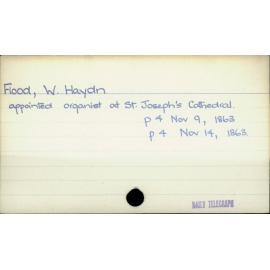 Flood, W. Haydn
appointed organist at St. Joseph's Cathedral.
p 4 Nov 9, 1863
p 4 Nov 14, 1863.
DAILY TELEGRAPH